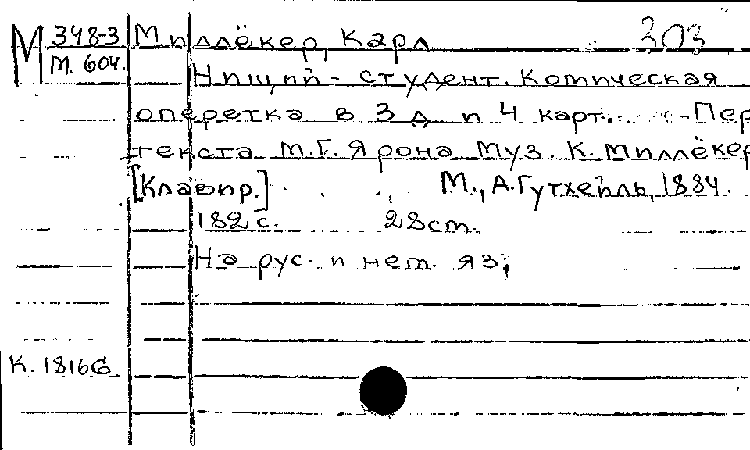 М 348-3 Миллёкер, Карл 303
М. 604.
Нищий - студент. Комическая
оперетка в 3 д и 4 карт. - Пер
текста М.Г. Ярона Муз. К. Миллёкер
[Клавир.] М., А. Гутхейль, 1884.
182 с. 28 см.
На рус. и нем. яз,
К. 1816